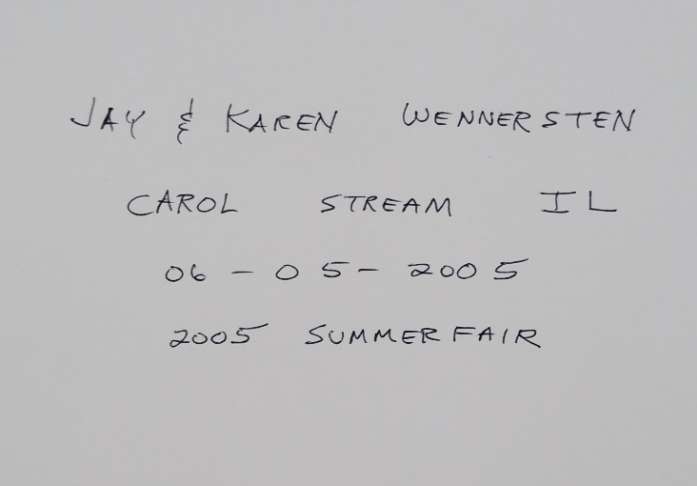 JAY & KAREN WENNERSTEN
CAROL STREAM IL
06-05-2005
2005 SUMMERFAIR